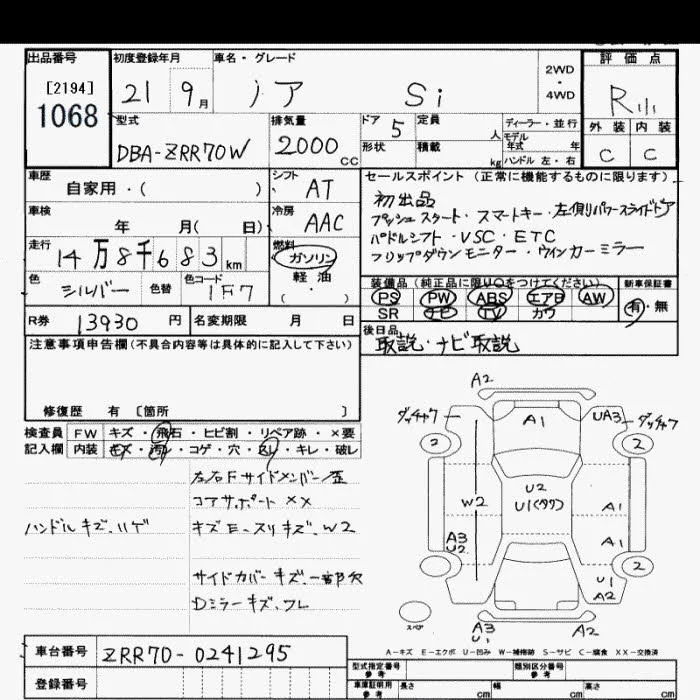 出品番号 [2194] 1068
初度登録年月 21 9月
車名・グレード ノア Si
2WD・4WD
評価点 R
外装 内装
C C
型式 DBA-ZRR70W
排気量 2000 CC
ドア 5 定員 人
形状 積載 kg
ディーラー・並行
モデル年式 年
ハンドル 左・右
車歴 自家用・( )
シフト AT
車検 年 月( 日)
冷房 AAC
走行 14万8千683km
燃料 ガソリン・軽油・( )
色 シルバー 色替 色コード 1F7
R券 13930円 名変期限 月 日
セールスポイント (正常に機能するものに限ります)
初出品
プッシュスタート・スマートキー・左側パワースライドドア
パドルシフト・VSC・ETC
フリップダウンモニター・ウインカーミラー
装備品 (純正品に限り○をつけてください) 新車保証書
PS PW ABS エアB AW 有・無
SR ナビ TV カワ
後日品
取説・ナビ取説
注意事項申告欄(不具合内容等は具体的に記入して下さい)
修復歴 有 〔箇所 〕
検査員記入欄
FW キズ・飛石・ヒビ割・リペア跡・×要
内装 キズ・汚レ・コゲ・穴・スレ・キレ・破レ
左右Fサイドメンバー歪
コアサポート××
ハンドルキズ、ハゲ
キズE-スリキズ、W2
サイドカバーキズ、一部欠
Dミラーキズ、ワレ
A2
ダッチャク A1 UA3 ダッチャク
2 2
U2
W2 U1(タワ) A1
A3 U2 A1
2
U1
A2
スペア
A3
U1
A2
A-キズ E-エクボ U-凹み W-補修跡 S-サビ C-腐食 XX-交換済
車台番号 ZRR70-0241295
登録番号
型式指定番号 参考
類別区分番号 参考
車庫証明用 参考 長さ cm 幅 cm 高さ cm